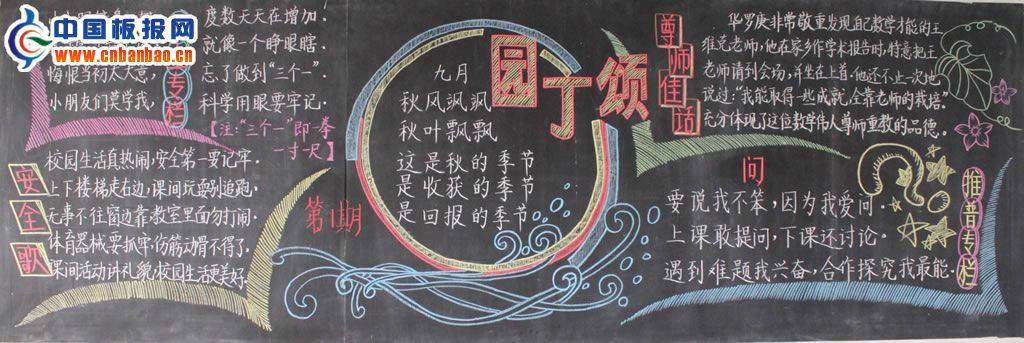 中国板报网
www.cnbanbao.cn
度数天天在增加!
就像一个睁眼瞎.
悔恨当初太大意,
忘了做到"三个一".
小朋友们莫学我,
科学用眼要牢记.
【注:"三个一"即一拳
一寸一尺】
专栏
安全歌
校园生活真热闹,安全第一要记牢.
上下楼梯走右边,课间玩耍别追跑,
无事不往窗边靠,教室里面勿打闹.
体育器械要抓牢,伤筋动骨不得了.
课间活动讲礼貌,校园生活更美好.
九月
秋风飒飒
秋叶飘飘
这是秋的季节
是收获的季节
是回报的季节
第1期
园丁颂
尊师佳话
华罗庚非常敬重发现自己数学才能的王
维克老师,他在家乡作学术报告时,特意把王
老师请到会场,并坐在上首.他还不止一次地
说过:"我能取得一些成就,全靠老师的栽培."
充分体现了这位数学伟人尊师重教的品德。
问
要说我不笨,因为我爱问.
上课敢提问,下课还讨论。
遇到难题我兴奋,合作探究我最能.
推普专栏